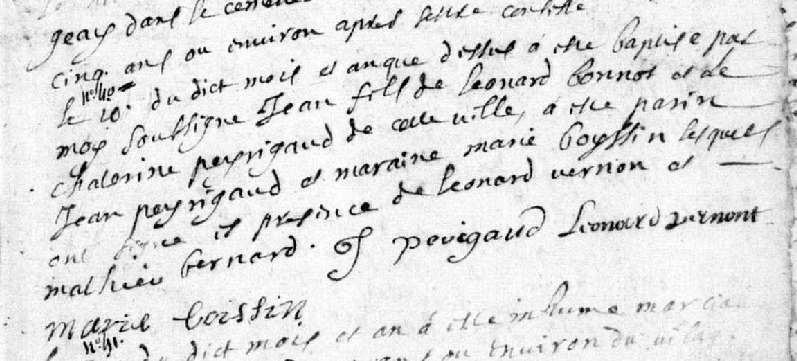 geay dans le
cinq ans ou environ apres sestre confesse
n.º 40
le 10.e du dict mois et an que dessus a este baptise par
moy soubsigne Jean fils de leonard bonnot et de
chaterine peyrigaud de cette ville, a este parin
Jean peyrigaud et maraine marie boyssin lesquels
ont signe et presence de leonard vernon et
mathieu bernard. peyigaud Leonard vernont
marie boissin
n.º 41.
du dict mois et an a este inhume
ans ou environ du